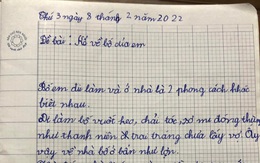 Thứ 3 ngày 8 tháng 2 năm 2022
Đề bài: Kể về bố của em
Bố em đi làm và ở nhà là 2 phong cách khác
biệt nhau.
Đi làm bố vuốt keo, chải tóc, xỏ mi đóng thùng
như thanh niên trai tráng chưa lấy vợ. Ấy
vậy về nhà bố ở bẩn như lợn.